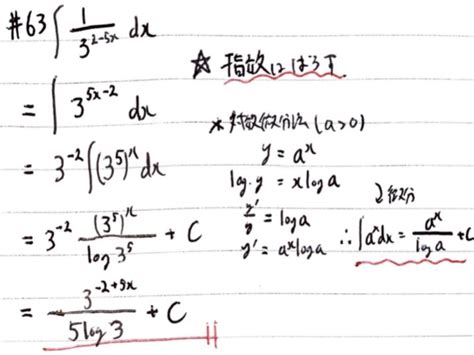 #63 ∫ 1/3^{2-5x} dx
= ∫ 3^{5x-2} dx
= 3^{-2} ∫ (3^5)^x dx
= 3^{-2} (3^5)^x / log 3^5 + C
= 3^{-2+5x} / 5 log 3 + C
☆ 指数はばらす.
* 対数微分法 (a>0)
y = a^x
log y = x log a
y'/y = log a
y' = a^x log a
∴ ∫ a^x dx = a^x / log a + C